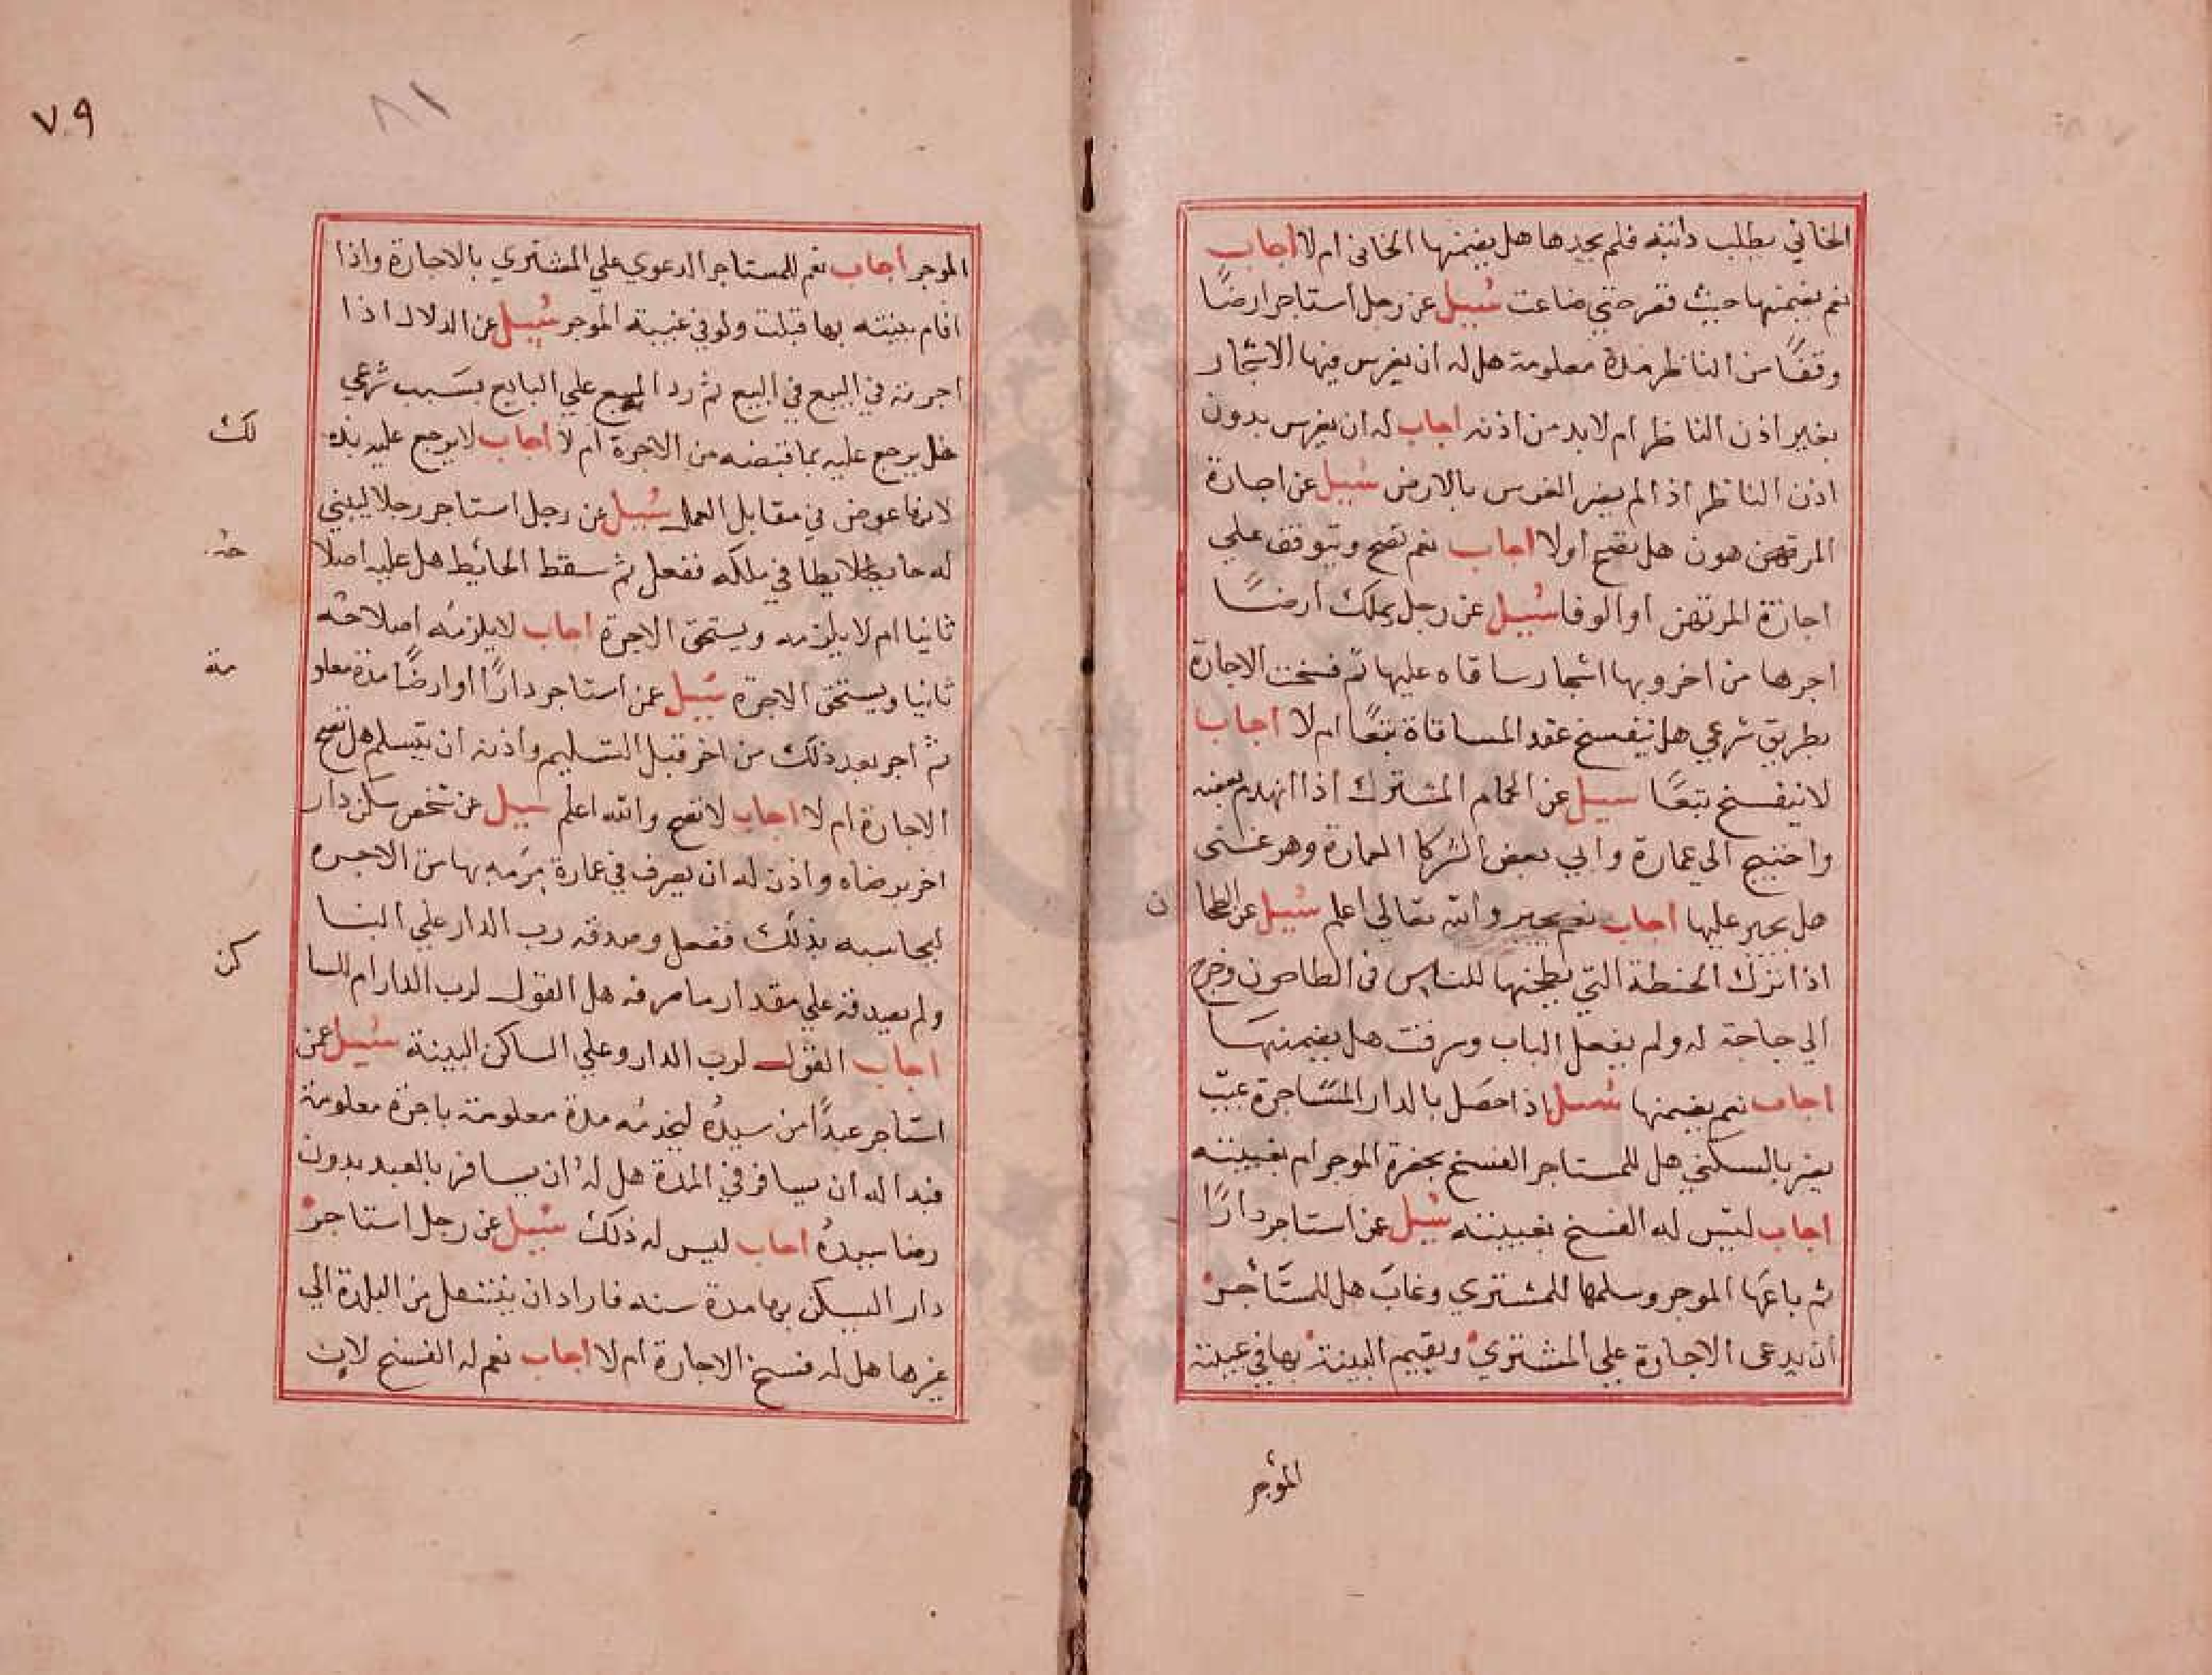 الخاني يطلب دابته فلم يجدها هل يضمنها الخاني ام لا اجاب
نعم يضمنها حيث قصر حتي ضاعت سُيل عن رجل استاجر ارضًا
وقفًا من الناظر مدة معلومة هل له ان يغرس فيها الاشجار
بغير اذن الناظر ام لابد من اذنه اجاب له ان يغرس بدون
اذن الناظر اذا لم يضر الغرس بالارض سُيل عن اجارة
هل تصح اولا اجاب نعم تصح وتتوقف علي
اجازة المرتهن او الوفا سُيل عن رجل يملك ارضًا
اجرها من اخر وبها اشجار ساقاه عليها ثم فسخت الاجارة
بطريق شرعي هل ينفسخ عقد المساقاة تبعًا ام لا اجاب
لا ينفسخ تبعًا سيل عن الحمام المشترك اذا انهدم بعضه
واحتيج الي عمارة وابي بعض الشركا العمارة وهو غني
هل يجبر عليها اجاب نعم يجبر والله تعالي اعلم سُيل عن الطحان
اذا ترك الحنطة التي يطحنها للناس في الطاحون وخرج
الي حاجة له ولم يقفل الباب وسرقت هل يضمنها
اجاب نعم يضمنها سُيل اذا حصل بالدار المستاجرة عيب
يضر بالسكني هل للمستاجر الفسخ بحضرة الموجر ام بغيبته
اجاب ليس له الفسخ بغيبته سُيل عن استاجر دارًا
ثم باعها الموجر وسلمها للمشتري وغاب هل للمستاجر
ان يدعي الاجارة علي المشتري ويقيم البينة بها في غيبة
المؤجر
٧٩
٨١
الموجر اجاب نعم للمستاجر الدعوي علي المشتري بالاجارة واذا
اقام بينته بها قبلت ولو في غيبة الموجر سُيل عن الدلال اذا
اجرته في البيع في البيع ثم رد المبيع علي البايع بسبب شرعي
هل يرجع عليه بما قبضه من الاجرة ام لا اجاب لا يرجع عليه بذلك
لانها عوض في مقابل العمل سُيل عن رجل استاجر رجلا ليبني
له حايطا في ملكه ففعل ثم سقط الحائيط هل عليه اصلاحه
ثانيا ام لا يلزمه ويستحق الاجرة اجاب لا يلزمه اصلاحه
ثانيا ويستحق الاجرة سُيل عمن استاجر دارًا او ارضًا مدة معلومة
ثم اجر بعد ذلك من اخر قبل التسليم واذنه ان يتسلم هل تصح
الاجارة ام لا اجاب لا تصح والله اعلم سيل عن شخص سكن دار
اخر برضاه واذن له ان يصرف في عمارة يرمه بها من الاجره
ليحاسبه بذلك ففعل وصدقه رب الدار علي البنا
ولم يصدقه علي مقدار ما صرفه هل القول لرب الدار ام للساكن
اجاب القول لرب الدار وعلي الساكن البينة سُيل عمن
استاجر عبدًا من سيده ليخدمه مدة معلومة باجرة معلومة
فبدا له ان يسافر في المدة هل له ان يسافر بالعبد بدون
رضا سيده اجاب ليس له ذلك سُيل عن رجل استاجر
دار اليسكن بها مدة سنه فاراد ان ينتقل من البلدة الي
غيرها هل له فسخ الاجارة ام لا اجاب نعم له الفسخ لان